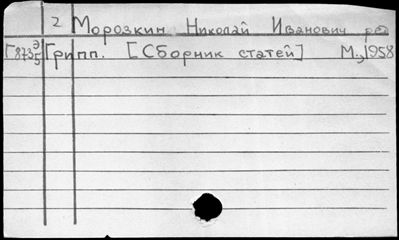 2 Морозкин Николай Иванович ред
Г873 Э/5 Грипп. [Сборник статей] М., 1958